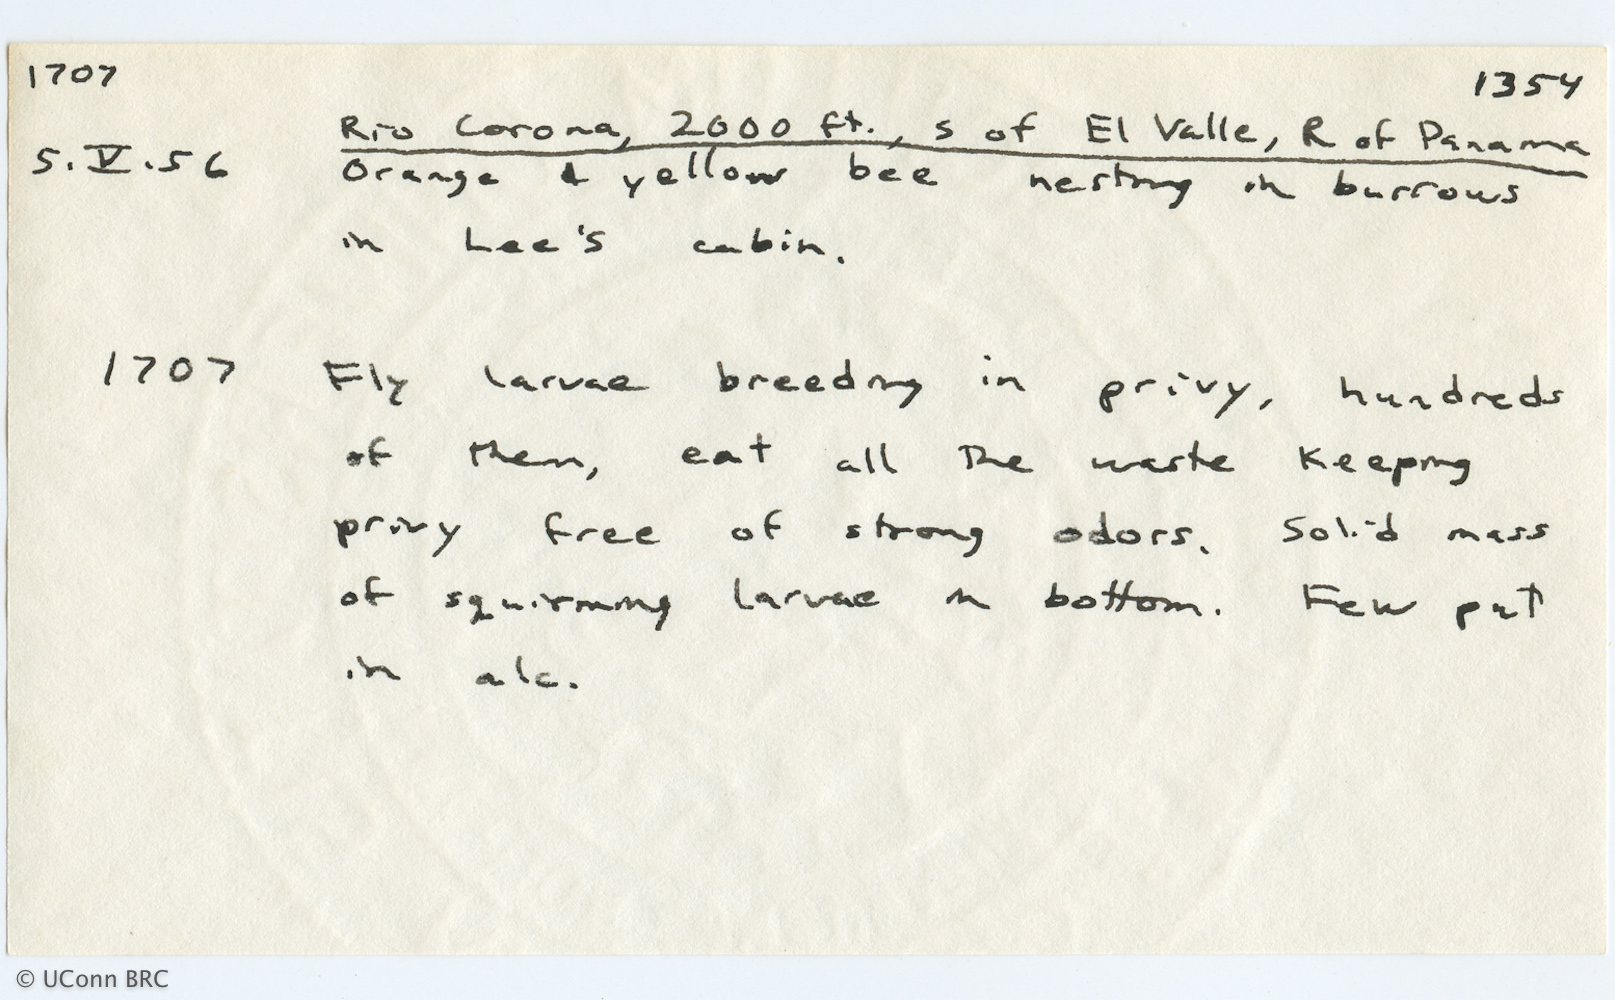 1707
1354
Rio Corona, 2000 ft., s of El Valle, R of Panama
5.V.56 Orange & yellow bee nesting in burrows
in Lee's cabin.
1707 Fly larvae breeding in privy, hundreds
of them, eat all the waste keeping
privy free of strong odors. Solid mass
of squirming larvae in bottom. Few put
in alc.
© UConn BRC